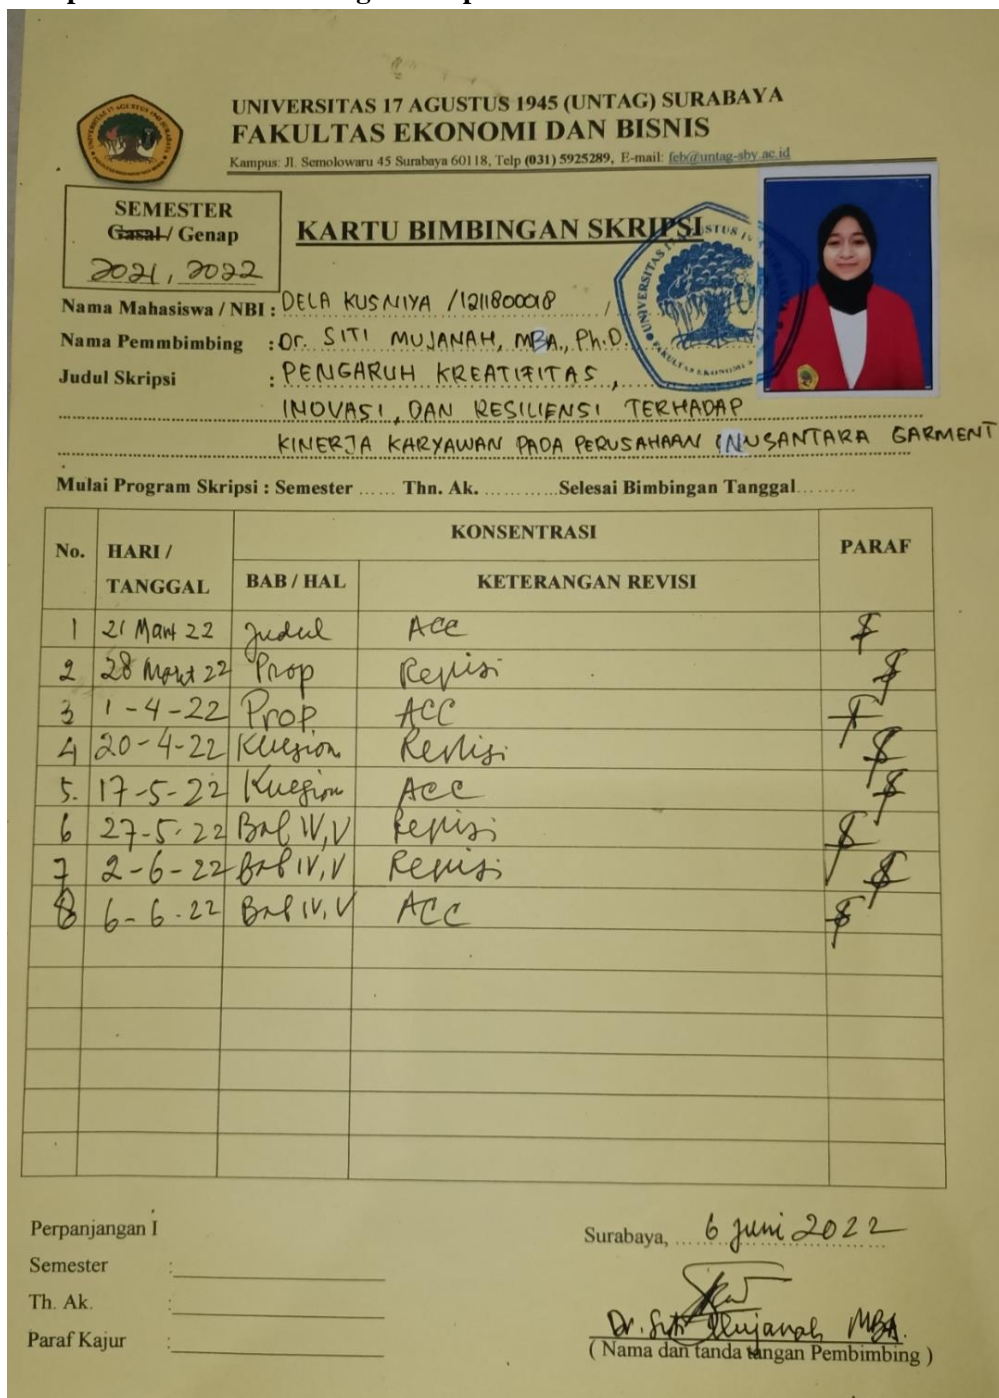 UNIVERSITAS 17 AGUSTUS 1945 (UNTAG) SURABAYA
FAKULTAS EKONOMI DAN BISNIS
Kampus: Jl. Semolowaru 45 Surabaya 60118, Telp (031) 5925289, E-mail: feb@untag-sby.ac.id
SEMESTER
Gasal / Genap
2021, 2022
KARTU BIMBINGAN SKRIPSI
Nama Mahasiswa / NBI : DELA KUSNIYA /1211800018 /
Nama Pemmbimbing : Dr. SITI MUJANAH, MBA., Ph.D.
Judul Skripsi : PENGARUH KREATIFITAS,
INOVASI, DAN RESILIENSI TERHADAP
KINERJA KARYAWAN PADA PERUSAHAAN NUSANTARA GARMENT
Mulai Program Skripsi : Semester ...... Thn. Ak. ............Selesai Bimbingan Tanggal.........
No. HARI / TANGGAL KONSENTRASI PARAF
BAB / HAL KETERANGAN REVISI
1 21 Maret 22 Judul ACC
2 28 Maret 22 Prop Revisi
3 1-4-22 Prop ACC
4 20-4-22 Kuesion Revisi
5. 17-5-22 Kuesion ACC
6 27-5-22 Bab IV, V Revisi
7 2-6-22 Bab IV, V Revisi
8 6-6-22 Bab IV, V ACC
Perpanjangan I
Semester :
Th. Ak. :
Paraf Kajur :
Surabaya, 6 Juni 2022
Dr. Siti Mujanah MBA.
( Nama dan tanda tangan Pembimbing )